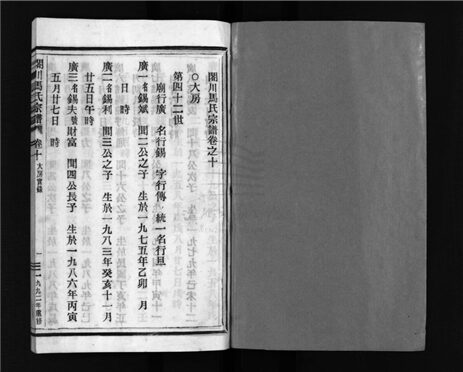 閣川馬氏宗譜卷之十
○大房
第四十二世
廟行廣 名行錫 字行傳 統一名行旦
廣一名錫斌 聞二公之子 生於一九七五年乙卯 月
日 時
廣二名錫利 聞三公之子 生於一九八三年癸亥十一月
廿五日午時
廣三名錫夫號財富 聞四公長子 生於一九八六年丙寅
五月廿七日 時
閣川馬氏宗譜 卷十 大房實錄
一 一九九二年重修